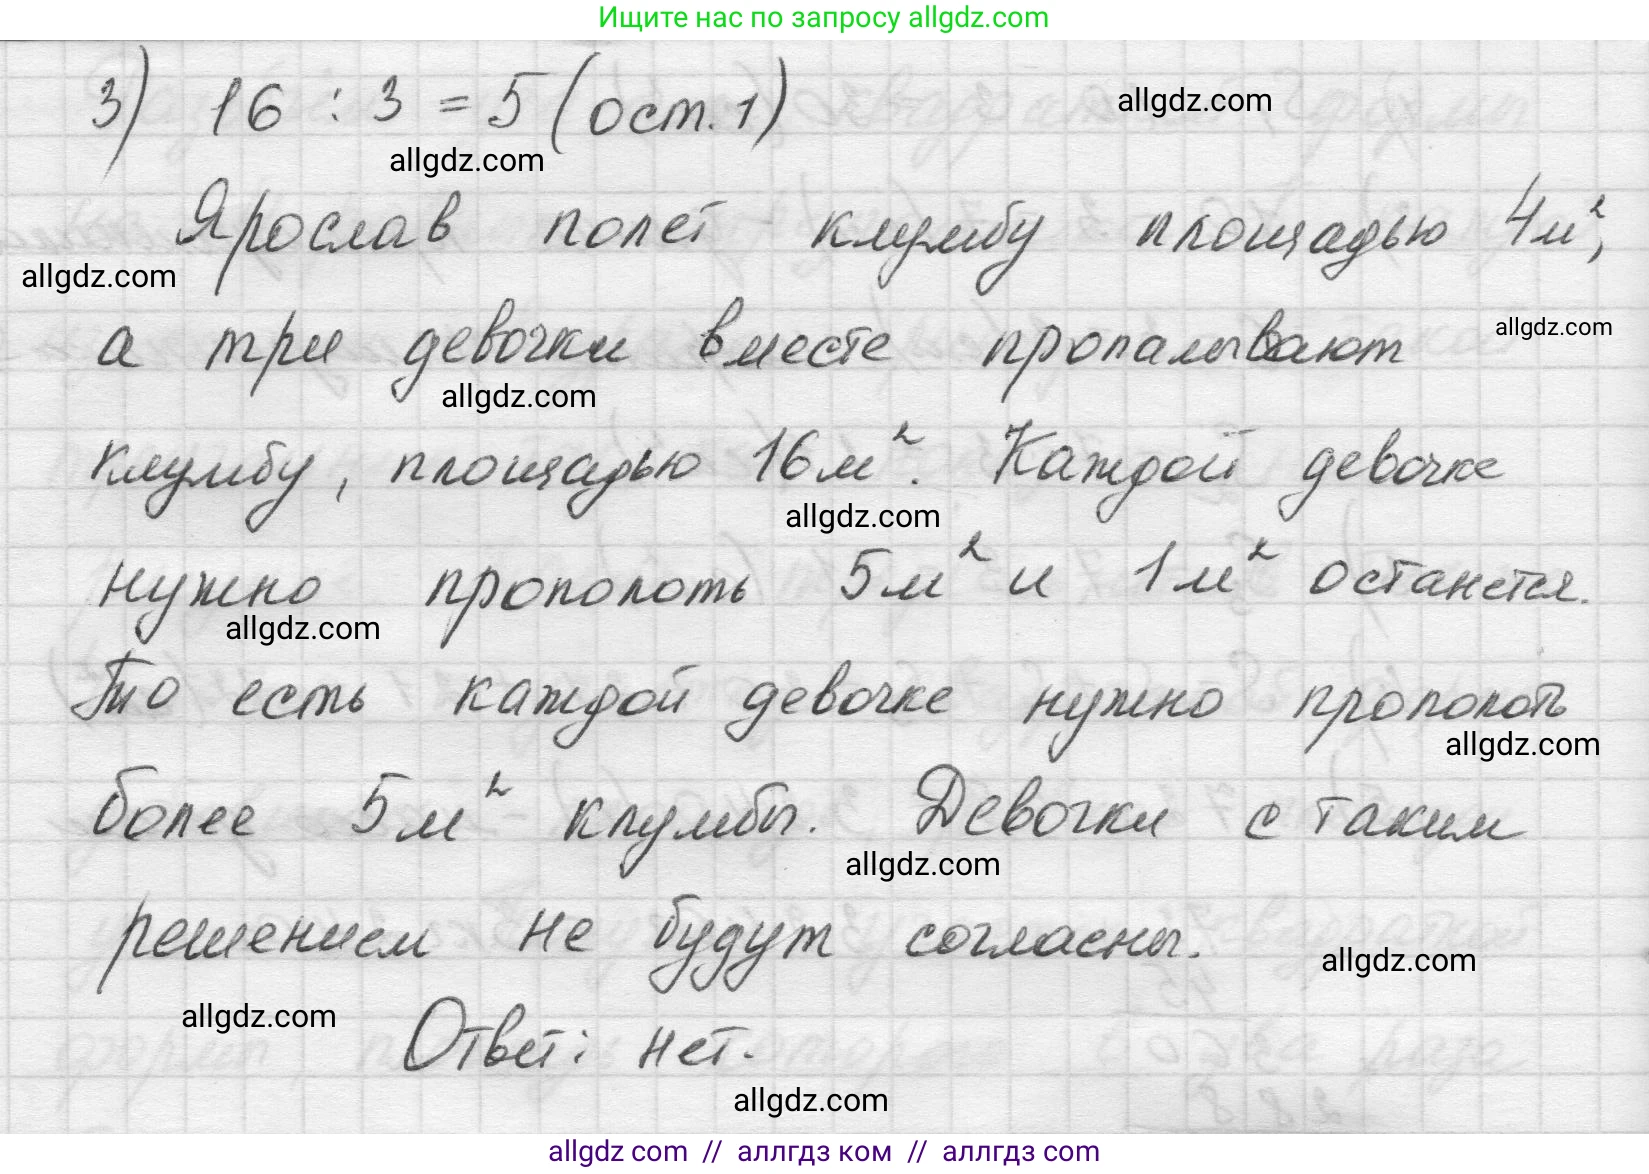 Ищите нас по запросу allgdz.com
3) 16 : 3 = 5 (ост. 1)
allgdz.com
allgdz.com
Ярослав полет клумбу площадью 4м²,
allgdz.com
а три девочки вместе пропалывают
allgdz.com
allgdz.com
клумбу, площадью 16м². Каждой девочке
allgdz.com
нужно прополоть 5м² и 1м² останется.
allgdz.com
То есть каждой девочке нужно прополоть
allgdz.com
более 5м² клумбы. Девочки с таким
allgdz.com
решением не будут согласны.
allgdz.com
allgdz.com
Ответ: нет.
allgdz.com
allgdz com // аллгдз ком // алллгдз com